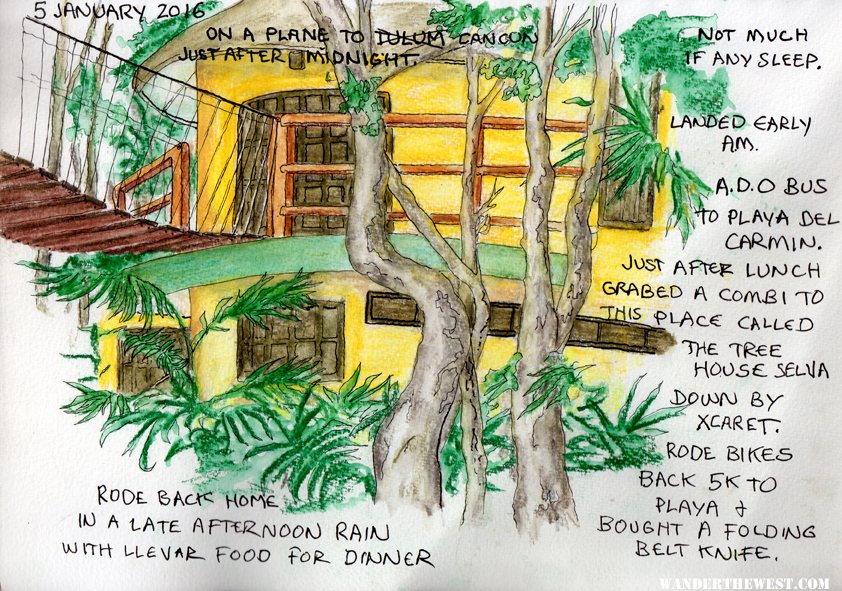 5 JANUARY 2016
ON A PLANE TO TULUM CANCUN
JUST AFTER MIDNIGHT.
NOT MUCH
IF ANY SLEEP.
LANDED EARLY
AM.
A.D.O BUS
TO PLAYA DEL
CARMIN.
JUST AFTER LUNCH
GRABED A COMBI TO
THIS PLACE CALLED
THE TREE
HOUSE SELVA
DOWN BY
XCARET.
RODE BIKES
BACK 5K TO
PLAYA &
BOUGHT A FOLDING
BELT KNIFE.
RODE BACK HOME
IN A LATE AFTERNOON RAIN
WITH LLEVAR FOOD FOR DINNER
WANDERTHEWEST.COM